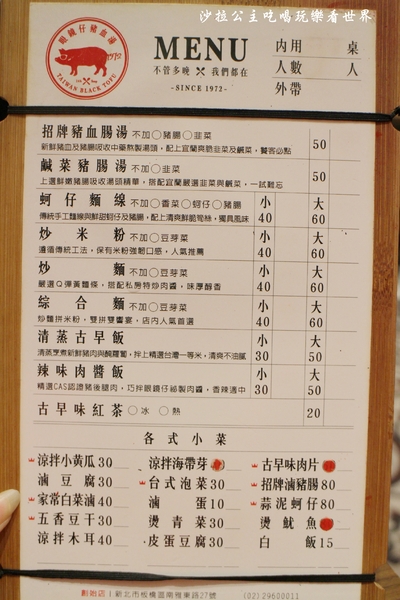 沙拉公主吃喝玩樂看世界
眼鏡仔豬血湯
1972
TAIWAN BLACK TOFU
MENU
不管多晚 我們都在
-SINCE 1972-
內用 桌
人數 人
外帶
招牌豬血腸湯 不加○豬腸○韭菜 50
鹹菜豬腸湯 不加○韭菜 50
上選鮮嫩豬腸吸收湯頭精華,搭配宜蘭嚴選韭菜與鹹菜,一試難忘
蚵仔麵線 不加○香菜○蚵仔○豬腸 小 40 大 60
傳統手工麵線與鮮甜蚵仔及豬腸,配上清爽鮮脆筍絲,獨具風味
炒米粉 不加○豆芽菜 小 40 大 60
遵循傳統工法,保有米粉強韌口感,人氣推薦
炒麵 不加○豆芽菜 小 40 大 60
嚴選Q彈黃麵條,搭配私房特炒肉醬,味厚醇香
綜合麵 不加○豆芽菜 小 40 大 60
炒麵拼米粉,雙拼雙饗宴,店內人氣首選
清蒸古早飯 小 30 大 50
清蒸烹煮新鮮豬肉與醃蘿蔔,拌上精選台灣一等米,清爽不油膩
辣味肉醬飯 小 30 大 50
精選CAS認證豬後腿肉,巧拌眼鏡仔祕製肉醬,香辣適中
古早味紅茶 ○冰 ○熱 20
各式小菜
涼拌小黃瓜30 涼拌海帶芽 古早味肉片
滷豆腐30 台式泡菜30 招牌滷豬腸80
家常白菜滷40 滷蛋10 蒜泥蚵仔80
五香豆干30 燙青菜30 燙魷魚
涼拌木耳40 皮蛋豆腐30 白飯15
創始店 | 新北市板橋區南雅東路27號 (02)29600011